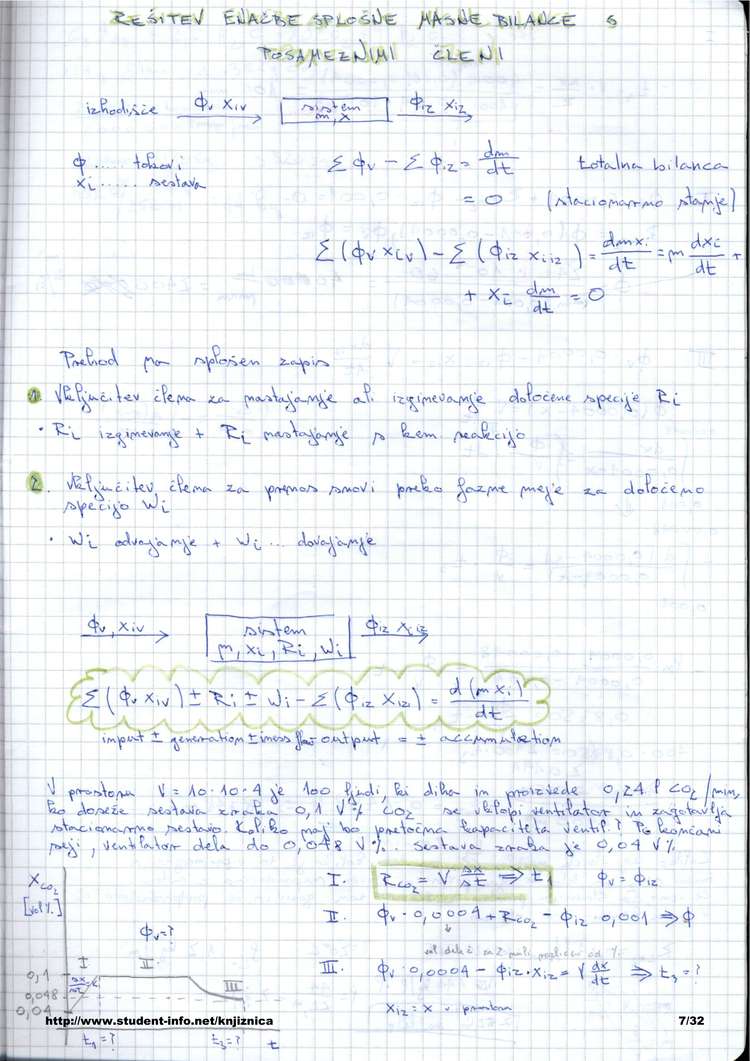 REŠITEV ENAČBE SPLOŠNE MASNE BILANCE S
POSAMEZNIMI ČLENI
izhodišče ϕv xiv sistem m, x ϕiz xiz
ϕ ..... tokovi Σϕv − Σϕiz = dm/dt totalna bilanca
xi ..... sestava = 0 (stacionarno stanje)
Σ(ϕv xiv) − Σ(ϕiz xiiz) = dmxi/dt = m dxi/dt +
+ xi dm/dt = 0
Prehod na splošen zapis
1 Vključitev člena za nastajanje ali izginevanje določene specije Ri
• Ri izginevanje + Ri nastajanje s kem. reakcijo
2. Vključitev člena za prenos snovi preko fazne meje za določeno
specijo Wi
• Wi odvajanje + Wi ... dovajanje
ϕv, xiv sistem m, xi, Ri, Wi ϕiz xiz
Σ(ϕv xiv) ± Ri ± Wi − Σ(ϕiz xiz) = d(m xi)/dt
input ± generation ± mass flow − output = ± accumulation
V prostoru V = 10·10·4 je 100 ljudi, ki diha in proizvede 0,24 l CO2/min,
ko doseže sestava zraka 0,1 V% CO2 se vklopi ventilator in zagotavlja
stacionarno sestavo. Koliko naj bo pretočna kapaciteta ventil.? Po končani
seji, ventilator dela do 0,048 V%. sestava zraka je 0,04 V%
I. RCO2 = V Δx/Δt ⇒ t1 ϕv = ϕiz
II. ϕv · 0,0004 + RCO2 − ϕiz · 0,001 ⇒ ϕ
III. ϕv · 0,0004 − ϕiz · xiz = V dx/dt ⇒ t3 = ?
xiz = x v prostoru
xCO2
[vol%]
ϕv = ?
I II III
0,1
Δx/Δt
0,048
0,04
t1 = ? t3 = ? t
http://www.student-info.net/knjiznica
7/32